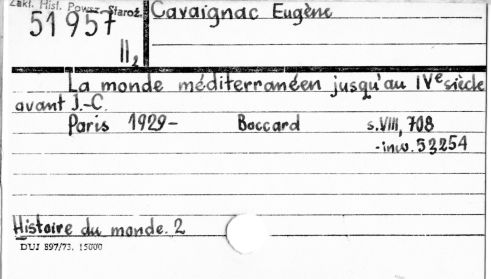 Zakł. Hist. Powsz. Staroż.
51957
II₂
Cavaignac Eugène
La monde méditerranéen jusqu'au IVe siècle
avant J.-C.
Paris 1929- Boccard s.VIII, 708
-inw. 53254
Histoire du monde. 2
DUJ 897/73. 15000